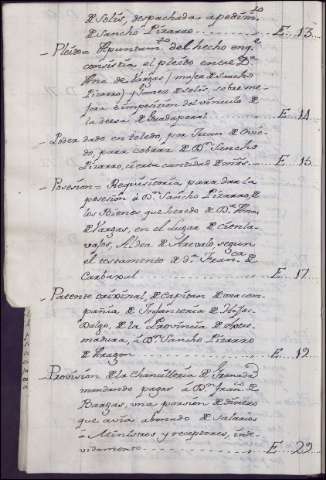 de Solís, despachada a pedim.to
de Sancho Pizarro . . . . . . E. 13.
— Pleito = Apuntam.to del hecho en q.e
consistia el pleito entre D.a
Ana de Vargas, mujer de Sancho
Pizarro, y Gomez de Solís, sobre me-
jora e imposicion del vinculo de
la deesa de Guadaperal . . . . E. 14.
— Poder dado en toledo, por Juan de Ovie-
do, para cobrar de D.n Sancho
Pizarro, cierta cantidad de mrs. . . E. 15.
— Posesion = Requisitoria para dar la
posesion á D.n Sancho Pizarro, de
los Bienes que heredó de D.n
de Vargas, en el Lugar de
Aldea de Arevalo segun
el testamento de d.n Fran.ca
Carbajal . . . . . . E. 17.
— Patente original, de Capitan de una com-
pañia, de Infanteria de Hijos-
Dalgo, de la Provincia de Estre-
madura, á D.n Sancho Pizarro
de Aragon . . . . . . E. 19.
— Provision de la Chancilleria de Granada
mandando pagar á D.n Juan de
Bargas, una porsion de dinero
que avia abonado de Salarios
á Ministros y receptores, inde-
vidamente . . . . . . E. 22.